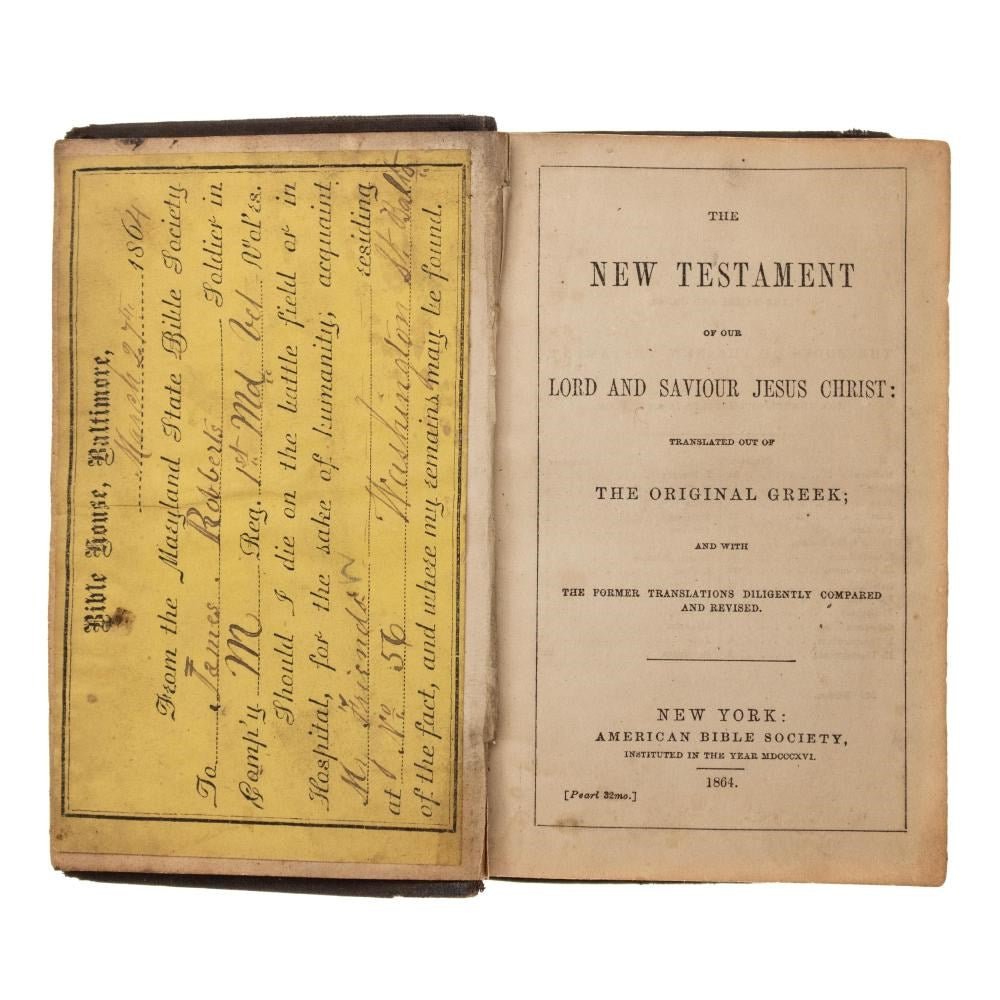 Bible House, Baltimore,
March 27th 1864
From the Maryland State Bible Society
To James Robberts Soldier in
Comp'y M Reg. 1st Md Vet Vol'rs.
Should I die on the battle field or in
Hospital, for the sake of humanity, acquaint
M Friendow residing
at No 56 Washington St Balto
of the fact, and where my remains may be found.
THE
NEW TESTAMENT
OF OUR
LORD AND SAVIOUR JESUS CHRIST:
TRANSLATED OUT OF
THE ORIGINAL GREEK;
AND WITH
THE FORMER TRANSLATIONS DILIGENTLY COMPARED
AND REVISED.
NEW YORK:
AMERICAN BIBLE SOCIETY,
INSTITUTED IN THE YEAR MDCCCXVI.
1864.
[Pearl 32mo.]